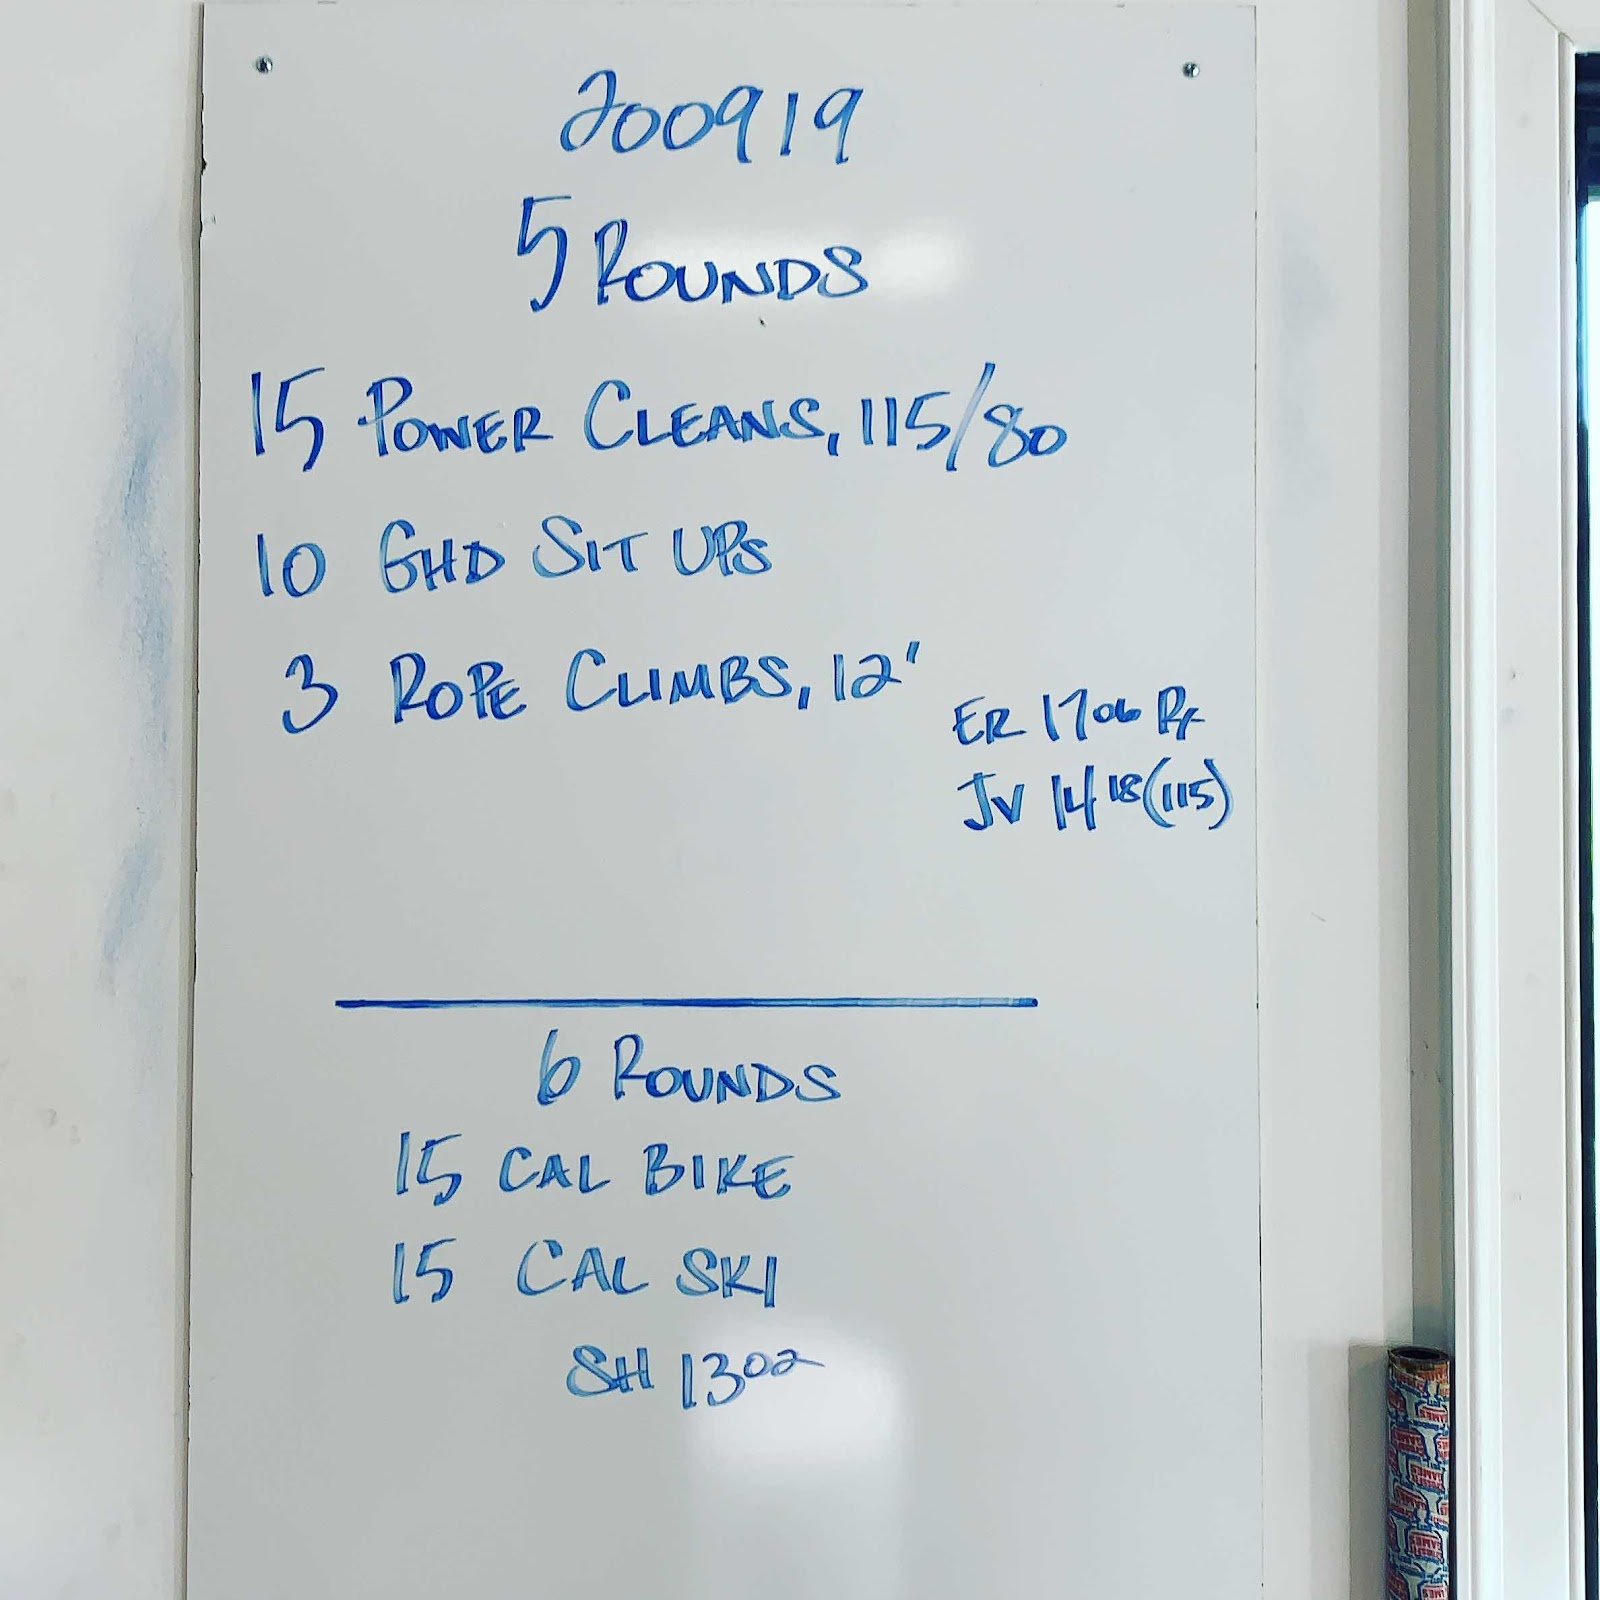 200919
5 ROUNDS
15 POWER CLEANS, 115/80
10 GHD SIT UPS
3 ROPE CLIMBS, 12'
ER 1706 Rx
JV 1418 (115)
6 ROUNDS
15 CAL BIKE
15 CAL SKI
SH 1302